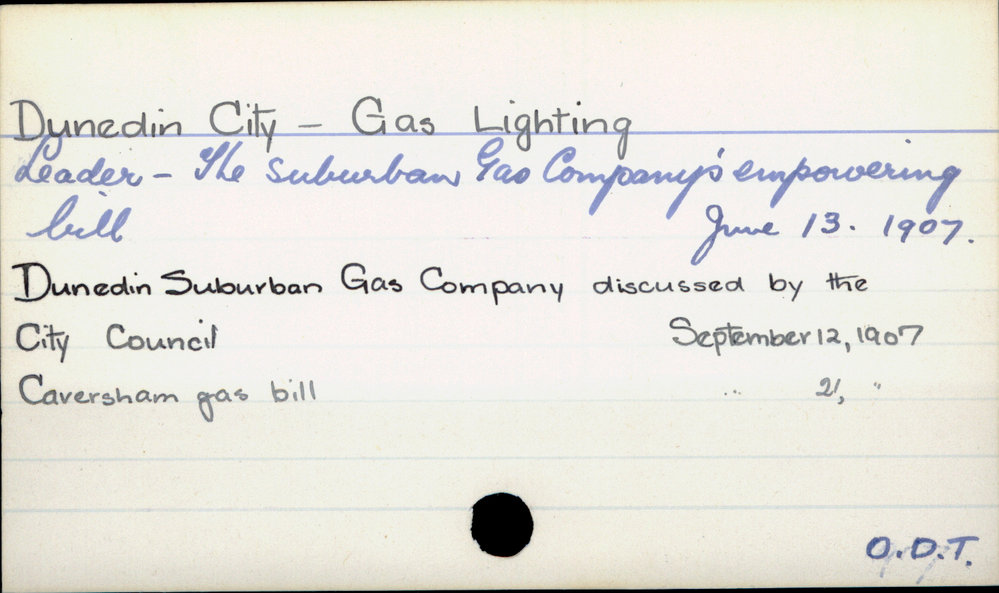 Dunedin City - Gas Lighting
Leader - The Suburban Gas Company's empowering
bill June 13. 1907.
Dunedin Suburban Gas Company discussed by the
City Council September 12, 1907
Caversham gas bill " 21, "
O.D.T.